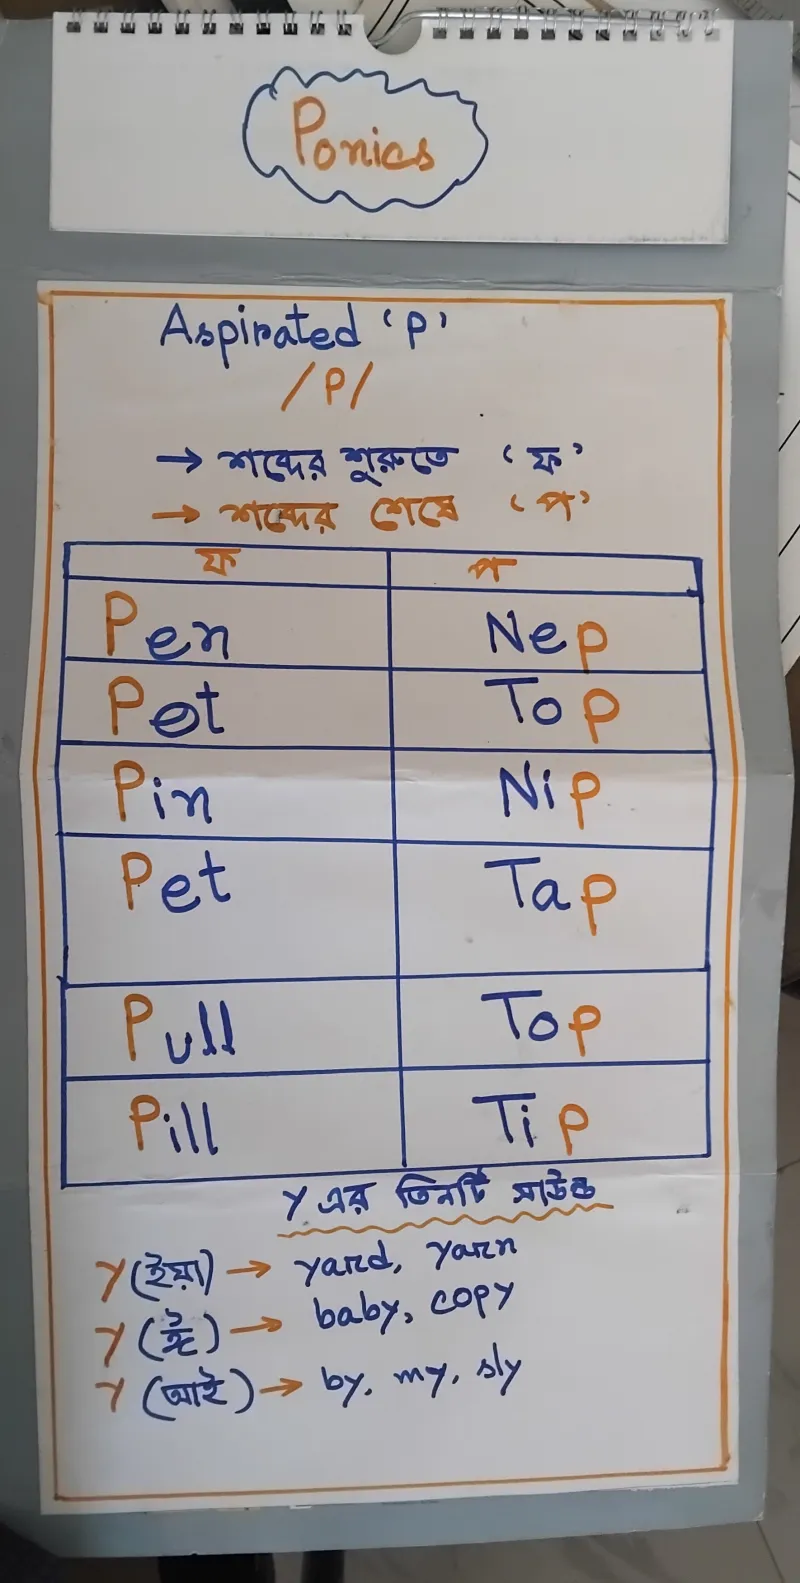 Ponics
Aspirated 'P'
/P/
→ শব্দের শুরুতে 'ফ'
→ শব্দের শেষে 'প'
ফ প
Pen Nep
Pot Top
Pin Nip
Pet Tap
Pull Top
Pill Tip
Y এর তিনটি সাউন্ড
Y (ইয়া) → yard, yarn
Y (ঈ) → baby, copy
Y (আই) → by, my, sly